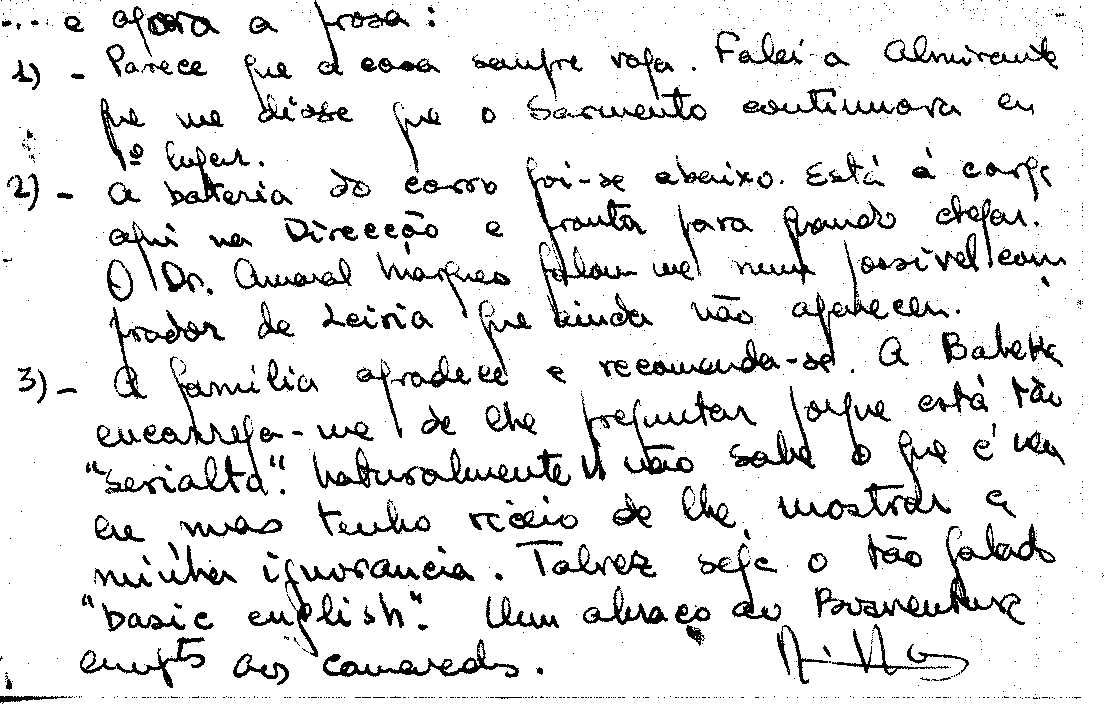 ... e agora a prosa:
1) - Parece que a casa sempre vaga. Falei a Almirante
que me disse que o Sarmento continuava em
1º lugar.
2) - A bateria do carro foi-se abaixo. Está à carga
aqui na Direcção e pronta para quando chegar.
O Dr. Amaral Marques falou-me num possivel com
prador de Leiria que ainda não apareceu.
3) - A família agradece e recomenda-se. A Babette
encarrega-me de lhe preguntar porque está tão
"serialta". Naturalmente V não sabe o que é nem
eu mas tenho receio de lhe mostrar a
minha ignorancia. Talvez seja o tão falado
"basic english". Um abraço ao Boaventura
cumpts aos camaradas.